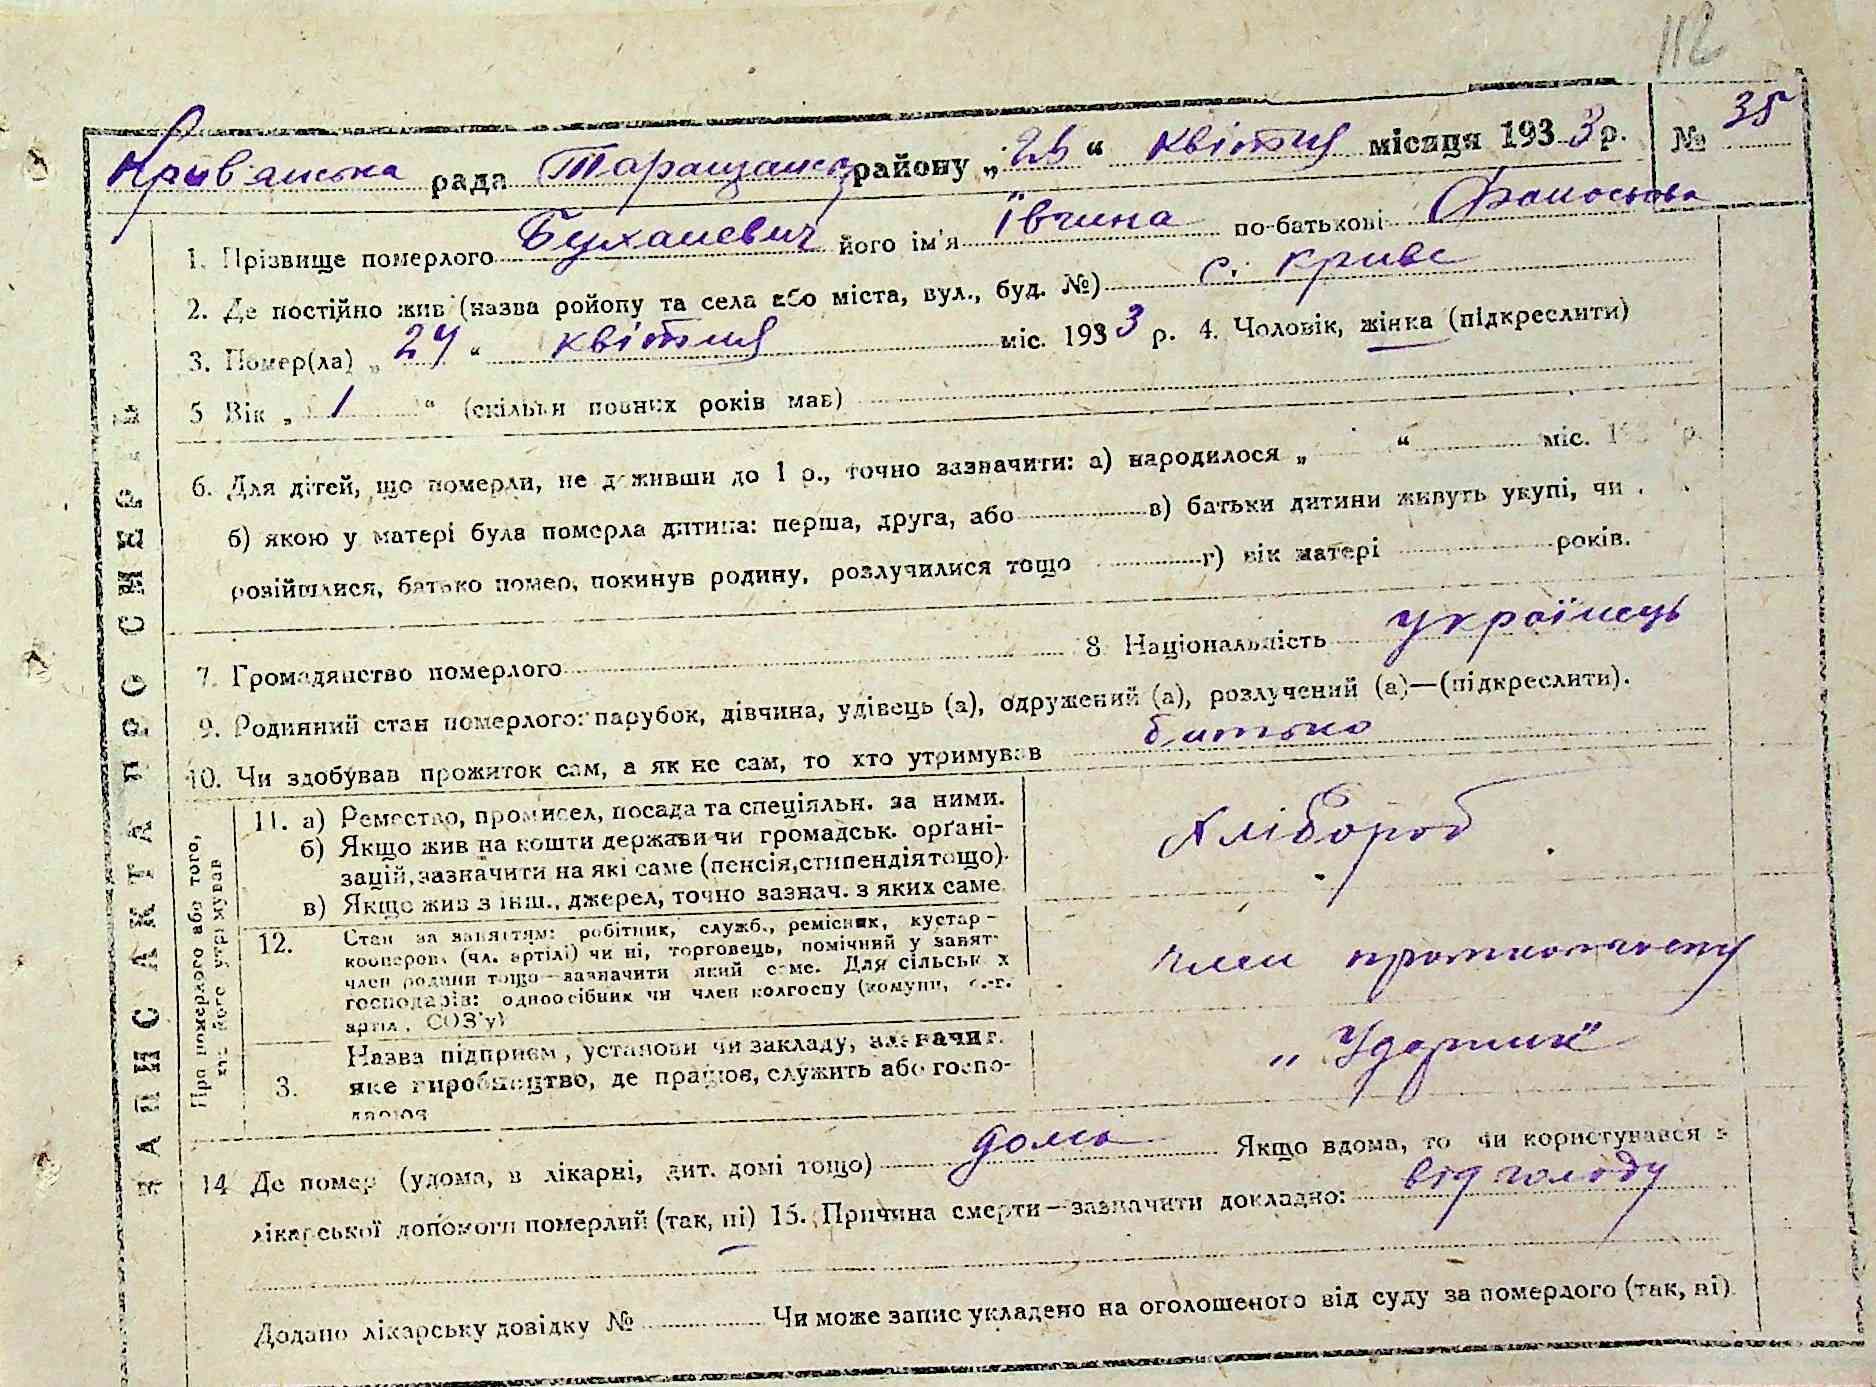 112
Крив'янська рада Таращанс району „25“ квітня місяця 1933 р. № 35
1. Прізвище померлого Буханевич його ім'я Ївгина по-батькові
2. Де постійно жив (назва ройону та села або міста, вул., буд. №) с. Криве
3. Помер(ла) „24“ квітня міс. 1933 р. 4. Чоловік, жінка (підкреслити)
5 Вік „1“ (скільки повних років мав)
6. Для дітей, що померли, не доживши до 1 р., точно зазначити: а) народилося „ “ міс. 193 р.
б) якою у матері була померла дитина: перша, друга, або в) батьки дитини живуть укупі, чи
розійшлися, батько помер, покинув родину, розлучилися тощо г) вік матері років.
7. Громадянство померлого 8. Національність Українець
9. Родинний стан померлого: парубок, дівчина, удівець (а), одружений (а), розлучений (а)—(підкреслити).
10. Чи здобував прожиток сам, а як не сам, то хто утримував батько
ЗАПИС АКТА ПРО СМЕРТЬ
Про померлого або того, хто його утримував
11. а) Ремество, промисел, посада та спеціяльн. за ними.
б) Якщо жив на кошти держави чи громадськ. орґані-
зацій, зазначити на які саме (пенсія, стипендія тощо).
в) Якщо жив з інш., джерел, точно зазнач. з яких саме.
Хлібороб
12. Стан за заняттям: робітник, служб., ремісник, кустар-
кооперов. (чл. артілі) чи ні, торговець, помічний у занят.
член родини тощо—зазначити який саме. Для сільськ х
господарів: одноосібник чи член колгоспу (комуни, с.-г.
артіл, СОЗ'у)
член
3. Назва підприєм, установи чи закладу, зазначит.
яке виробництво, де працюв, служить або госпо-
дарює
„Ударник“
14 Де помер (удома, в лікарні, дит. домі тощо) дома Якщо вдома, то чи користувався з
лікарської допомоги померлий (так, ні) 15. Причина смерти—зазначити докладно: від голоду
Додано лікарську довідку № Чи може запис укладено на оголошеного від суду за померлого (так, ні)